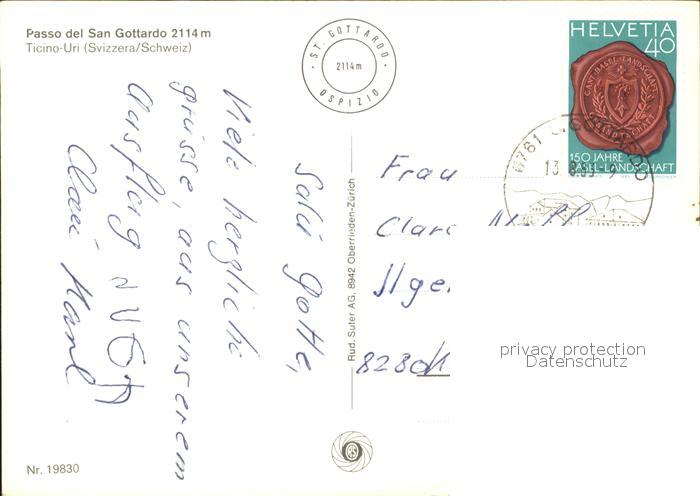 Passo del San Gottardo 2114 m
Ticino-Uri (Svizzera/Schweiz)
ST. GOTTARDO
2114 m
OSPIZIO
HELVETIA
40
CANT. BASEL-LANDSCHAFT
150 JAHRE
BASEL-LANDSCHAFT
6761
13.
Salü Gotte,
Viele herzliche
grüsse, aus unserem
Ausflug
Frau
Ilge
8280
Rud. Suter AG, 8942 Oberrieden-Zürich
privacy protection
Datenschutz
Nr. 19830